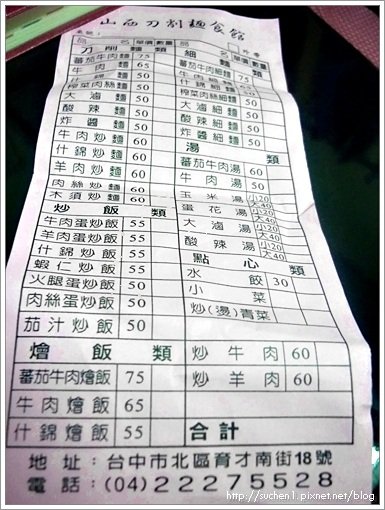 山西刀削麵食館
桌號：
外帶
品名 單價 數量
刀削麵類
蕃茄牛肉麵 75
牛肉麵 65
什錦麵 50
榨菜肉絲麵 50
大滷麵 50
酸辣麵 50
炸醬麵 50
牛肉炒麵 60
什錦炒麵 60
羊肉炒麵 60
肉絲炒麵 50
木須炒麵 60
炒飯類
牛肉蛋炒飯 55
羊肉蛋炒飯 55
什錦炒飯 55
蝦仁炒飯 55
火腿蛋炒飯 50
肉絲蛋炒飯 50
茄汁炒飯 50
燴飯類
蕃茄牛肉燴飯 75
牛肉燴飯 65
什錦燴飯 55
品名 單價 數量
細麵類
蕃茄牛肉細麵
牛肉細麵
什錦細麵
榨菜肉絲細麵
大滷細麵
酸辣細麵
炸醬細麵
湯類
蕃茄牛肉湯 60
牛肉湯
玉米湯 小20 大40
蛋花湯 小20 大40
大滷湯 小20 大40
酸辣湯 小20 大40
點心類
水餃 30
小菜
炒(燙)青菜
炒牛肉 60
炒羊肉 60
合計
地址：台中市北區育才南街18號
電話：(04)22275528
http://suchen1.pixnet.net/blog